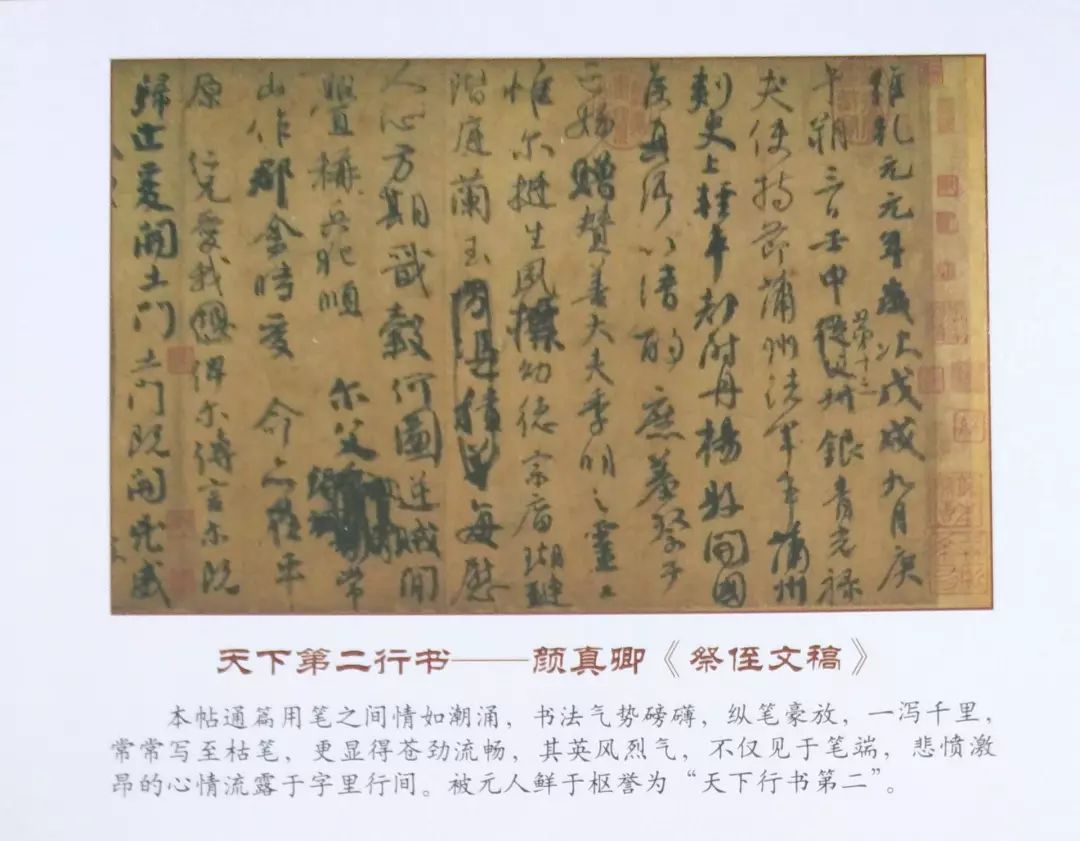 維乾元元年歲次戊戌九月庚
午朔三日壬申第十三叔銀青光祿
夫使持節蒲州諸軍事蒲州
刺史上輕車都尉丹楊縣開國
侯真卿以清酌庶羞祭于
亡姪贈贊善大夫季明之靈曰
惟尔挺生夙標幼德宗廟瑚璉
階庭蘭玉每慰
人心方期戩穀何圖逆賊間
釁稱兵犯順尔父常
山作郡余時受命亦在平
原仁兄愛我俾尔傳言尔既
歸止爰開土門土門既開兇威
天下第二行书——颜真卿《祭侄文稿》
本帖通篇用笔之间情如潮涌，书法气势磅礴，纵笔豪放，一泻千里，
常常写至枯笔，更显得苍劲流畅，其英风烈气，不仅见于笔端，悲愤激
昂的心情流露于字里行间。被元人鲜于枢誉为“天下行书第二”。